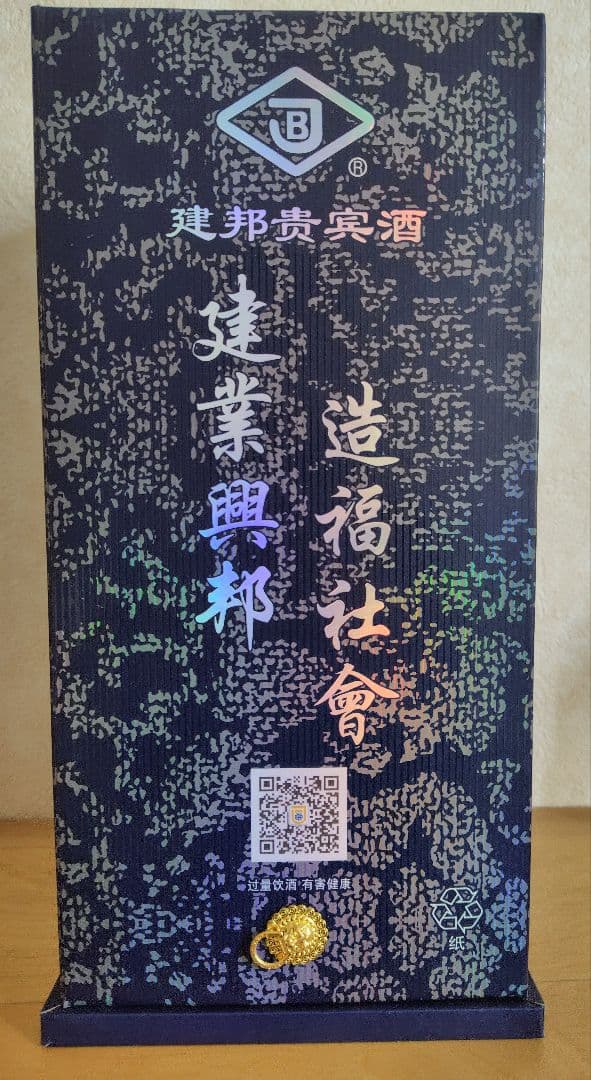 JB
®
建邦贵宾酒
建業興邦
造福社會
过量饮酒 有害健康
纸